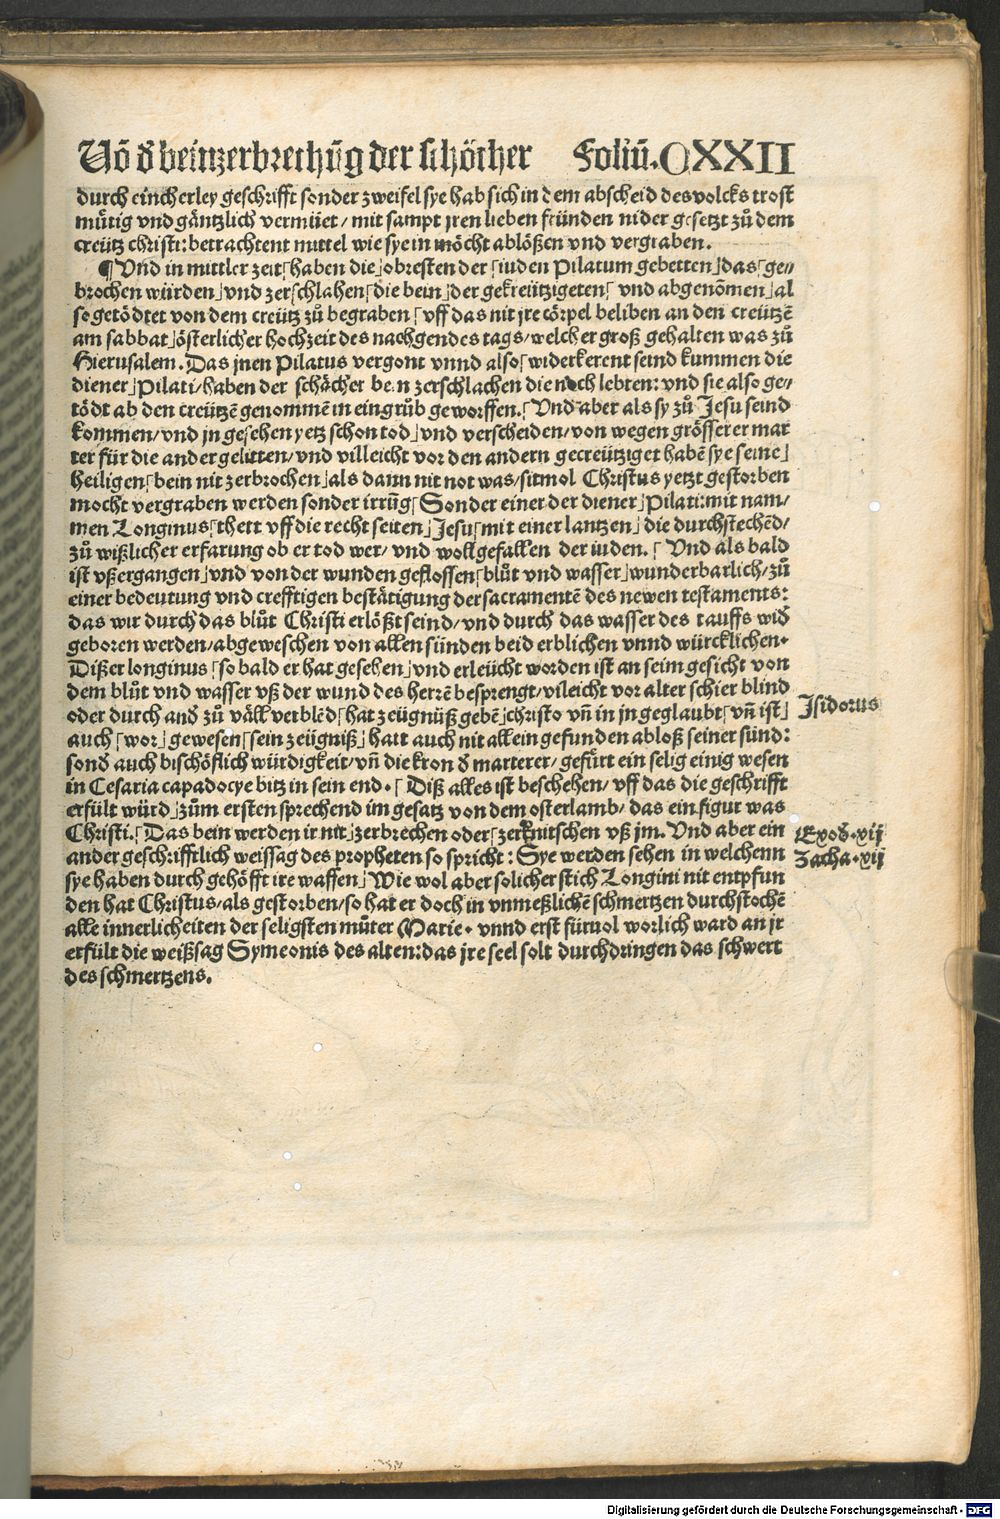 Vō d̄ beinzerbrechūg der schöcher Foliū. CXXII
durch eincherley geschrifft sonder zweifel sye hab sich in dem abscheid des volcks trost
mütig vnd gäntzlich vermüet / mit sampt jren lieben fründen nider gesetzt zů dem
creütz christi: betrachtent mittel wie sye in möcht ablößen vnd vergraben.
¶ Vnd in mittler zeit ⌈haben die⌋ obresten der ⌈iuden Pilatum gebetten⌋ das ⌈ge⸗
brochen würden⌋ vnd zerschlahen ⌈die bein⌋ der gekreützigeten ⌈ vnd abgenōmen⌋ al
so getödtet von dem creütz zů begraben ⌈ vff das nit jre cörpel beliben an den creützē
am sabbat⌋ österlicher hochzeit des nachgendes tags / welcher groß gehalten was zů
Hierusalem. Das jnen Pilatus vergont vnnd also ⌈ widerkerent seind kummen die
diener⌋ Pilati / haben der schächer bein zerschlachen die noch lebten: vnd sie also ge⸗
tödt ab den creützē genommē in ein grůb geworffen. ⌈ Vnd aber als sy zů Jesu seind
kommen / vnd jn gesehen yetz schon tod⌋ vnd verscheiden / von wegen grösserer mar
ter für die ander gelitten / vnd villeicht vor den andern gecreütziget habē sye seine⌋
heiligen ⌈bein nit zerbrochen⌋ als dann nit not was / sitmol Christus yetzt gestorben
mocht vergraben werden sonder irrūg ⌈Sonder einer der diener⌋ Pilati: mit nam⸗
men Longinus ⌈thett vff die recht seiten⌋ Jesu ⌈mit einer lantzen⌋ die durchstechēd /
zů wißlicher erfarung ob er tod wer / vnd wollgefallen der iuden. ⌈ Vnd als bald
ist vßergangen⌋ vnd von der wunden geflossen ⌈blůt vnd wasser⌋ wunderbarlich / zů
einer bedeutung vnd crefftigen bestätigung der sacramentē des newen testaments:
das wir durch das blůt Christi erlößt seind / vnd durch das wasser des tauffs wid̄
geboren werden / abgeweschen von allen sünden beid erblichen vnnd würcklichen.
Dißer longinus ⌈so bald er hat gesehen⌋ vnd erleücht worden ist an seim gesicht von
dem blůt vnd wasser vß der wund des herrē besprengt / vileicht vor alter schier blind
oder durch and̄ zů väll verblēd ⌈hat zeügnüß gebē⌋ christo vñ in jn geglaubt ⌈vñ ist⌋
auch ⌈wor⌋ gewesen ⌈sein zeügniß⌋ hatt auch nit allein gefunden abloß seiner sünd:
sond̄ auch bischöflich würdigkeit / vñ die kron d̄ marterer / gefürt ein selig einig wesen
in Cesaria capadocye bitz in sein end. ⌈ Diß alles ist beschehen / vff das die geschrifft
erfült würd⌋ zům ersten sprechend im gesatz von dem osterlamb / das ein figur was
Christi. ⌈ Das bein werden ir nit⌋ zerbrechen oder ⌈zerknitschen vß jm. Vnd aber ein
ander geschrifftlich weissag des propheten so spricht: Sye werden sehen in welchenn
sye haben durch gehöfft ire waffen⌋ Wie wol aber solicher stich Longini nit entpfun
den hat Christus / als gestorben / so hat er doch in vnmeßlichē schmertzen durchstochē
alle innerlicheiten der seligsten můter Marie. vnnd erst füruol worlich ward an jr
erfült die weißsag Symeonis des alten: das jre seel solt durchdringen das schwert
des schmertzens.
Isidorus
Exod̄. xij
Zacha. xij
Digitalisierung gefördert durch die Deutsche Forschungsgemeinschaft - DFG